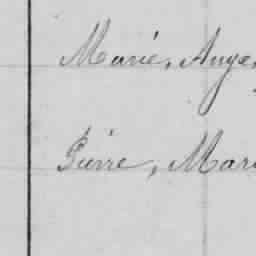 Marie, Ange,
Pierre, Mari